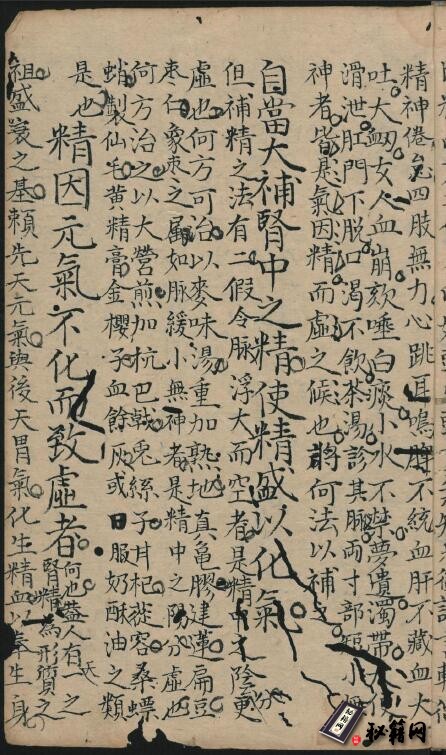 精神倦怠四肢無力心跳耳鳴脾不統血肝不藏血大
吐大衄女人血崩欬唾白痰小水不学夢遺濁帶不
滑泄肛門下脱口渴不飲茶湯診其脉両寸部短小
神者皆是氣因精而虛之候也將何法以補之
自當大補腎中之精使精盛以化氣
但補精之法有二假令脉浮大而空者是精中之陰分更
虛也何方可治以麥味湯重加熟地真龜膠建蓮扁豆
枣仁象枣之屬如脉緩小無神者是精中之陽分虛也
何方治之以大營煎加杭巴戟兎絲子甘杞從容桑螵
蛸製仙毛黄精膏金櫻子血餘灰或日服奶酥油之類
是也 精因元氣不化而致虛者何也盖人有天之
腎精為形質之
祖盛衰之基頼先天元氣與後天胃氣化生精血以奉生身
秘籍网